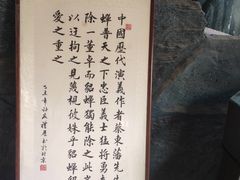 中國歷代演義作者蔡東藩先生
蟬普天之下忠臣義士猛將勇
除一董卓而貂蟬獨能除
以迂拘之見蔑視彼姝乎貂蟬貂
愛之重之